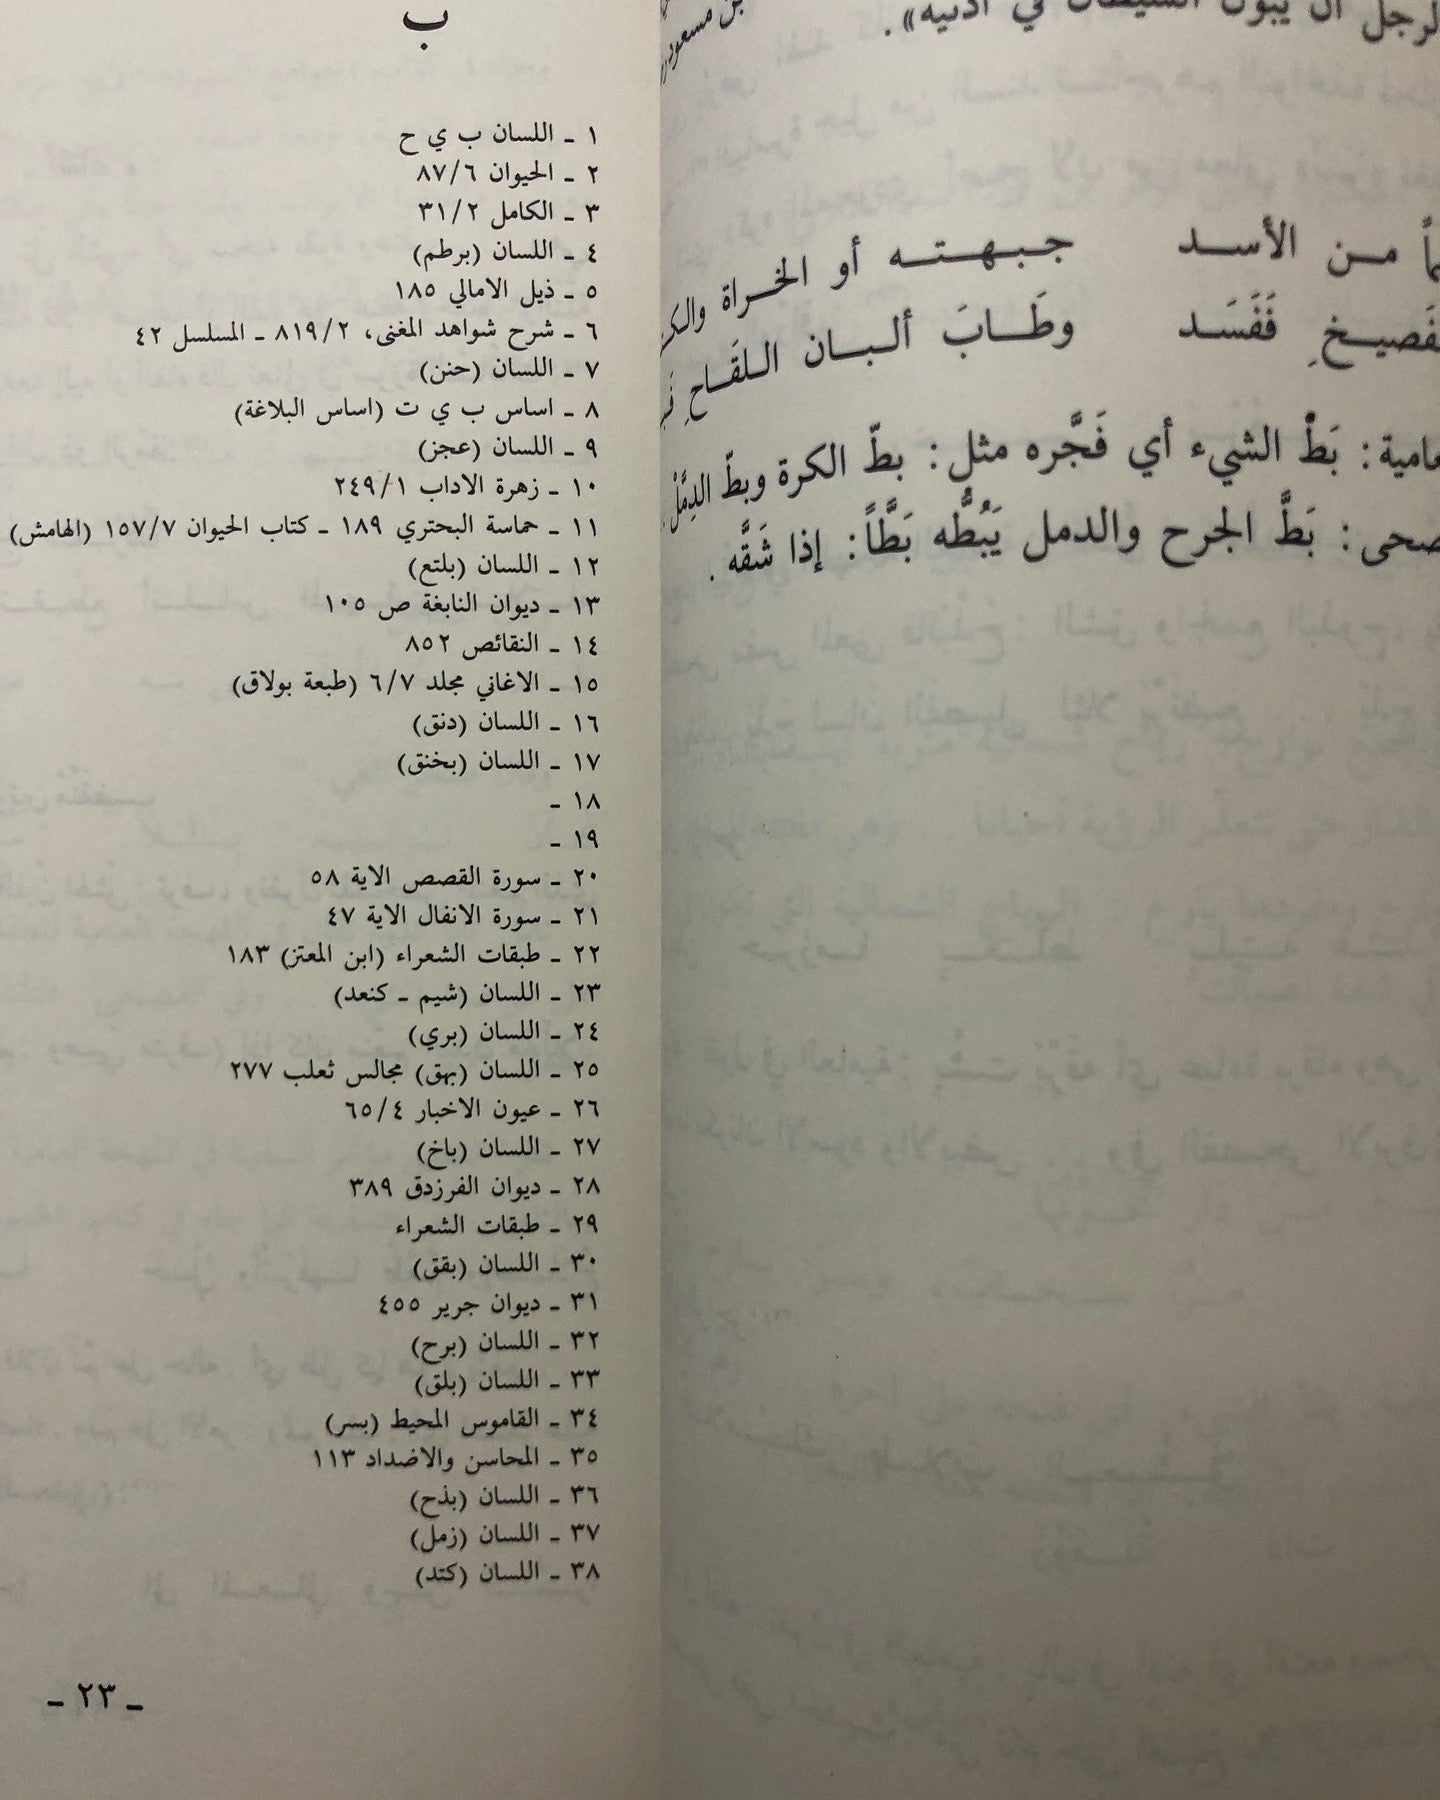 بن مسعود
الرجل أن يبول الشيطان في أذنيه».
من الأسد جبهته أو الخراة والكـ
فَفَسَد وطَابَ ألبان اللقَاحِ
بَطّ الشيء أي فَجَّره مثل: بطّ الكرة وبطّ الدِمَّلْ.
بَطَّ الجرح والدمل يَبُطُّه بَطَّاً: إذا شَقَّه.
ب
١ ـ اللسان ب ي ح
٢ ـ الحيوان ٨٧/٦
٣ ـ الكامل ٣١/٢
٤ ـ اللسان (برطم)
٥ ـ ذيل الامالي ١٨٥
٦ ـ شرح شواهد المغنى، ٨١٩/٢ ـ المسلسل ٤٢
٧ ـ اللسان (حنن)
٨ ـ اساس ب ي ت (اساس البلاغة)
٩ ـ اللسان (عجز)
١٠ ـ زهرة الاداب ٢٤٩/١
١١ ـ حماسة البحتري ١٨٩ ـ كتاب الحيوان ١٥٧/٧ (الهامش)
١٢ ـ اللسان (بلتع)
١٣ ـ ديوان النابغة ص ١٠٥
١٤ ـ النقائص ٨٥٢
١٥ ـ الاغاني مجلد ٦/٧ (طبعة بولاق)
١٦ ـ اللسان (دنق)
١٧ ـ اللسان (بخنق)
١٨ ـ
١٩ ـ
٢٠ ـ سورة القصص الاية ٥٨
٢١ ـ سورة الانفال الاية ٤٧
٢٢ ـ طبقات الشعراء (ابن المعتز) ١٨٣
٢٣ ـ اللسان (شيم ـ كنعد)
٢٤ ـ اللسان (بري)
٢٥ ـ اللسان (بهق) مجالس ثعلب ٢٧٧
٢٦ ـ عيون الاخبار ٦٥/٤
٢٧ ـ اللسان (باخ)
٢٨ ـ ديوان الفرزدق ٣٨٩
٢٩ ـ طبقات الشعراء
٣٠ ـ اللسان (بقق)
٣١ ـ ديوان جرير ٤٥٥
٣٢ ـ اللسان (برح)
٣٣ ـ اللسان (بلق)
٣٤ ـ القاموس المحيط (بسر)
٣٥ ـ المحاسن والاضداد ١١٣
٣٦ ـ اللسان (بذح)
٣٧ ـ اللسان (زمل)
٣٨ ـ اللسان (كتد)
ـ ٢٣ ـ